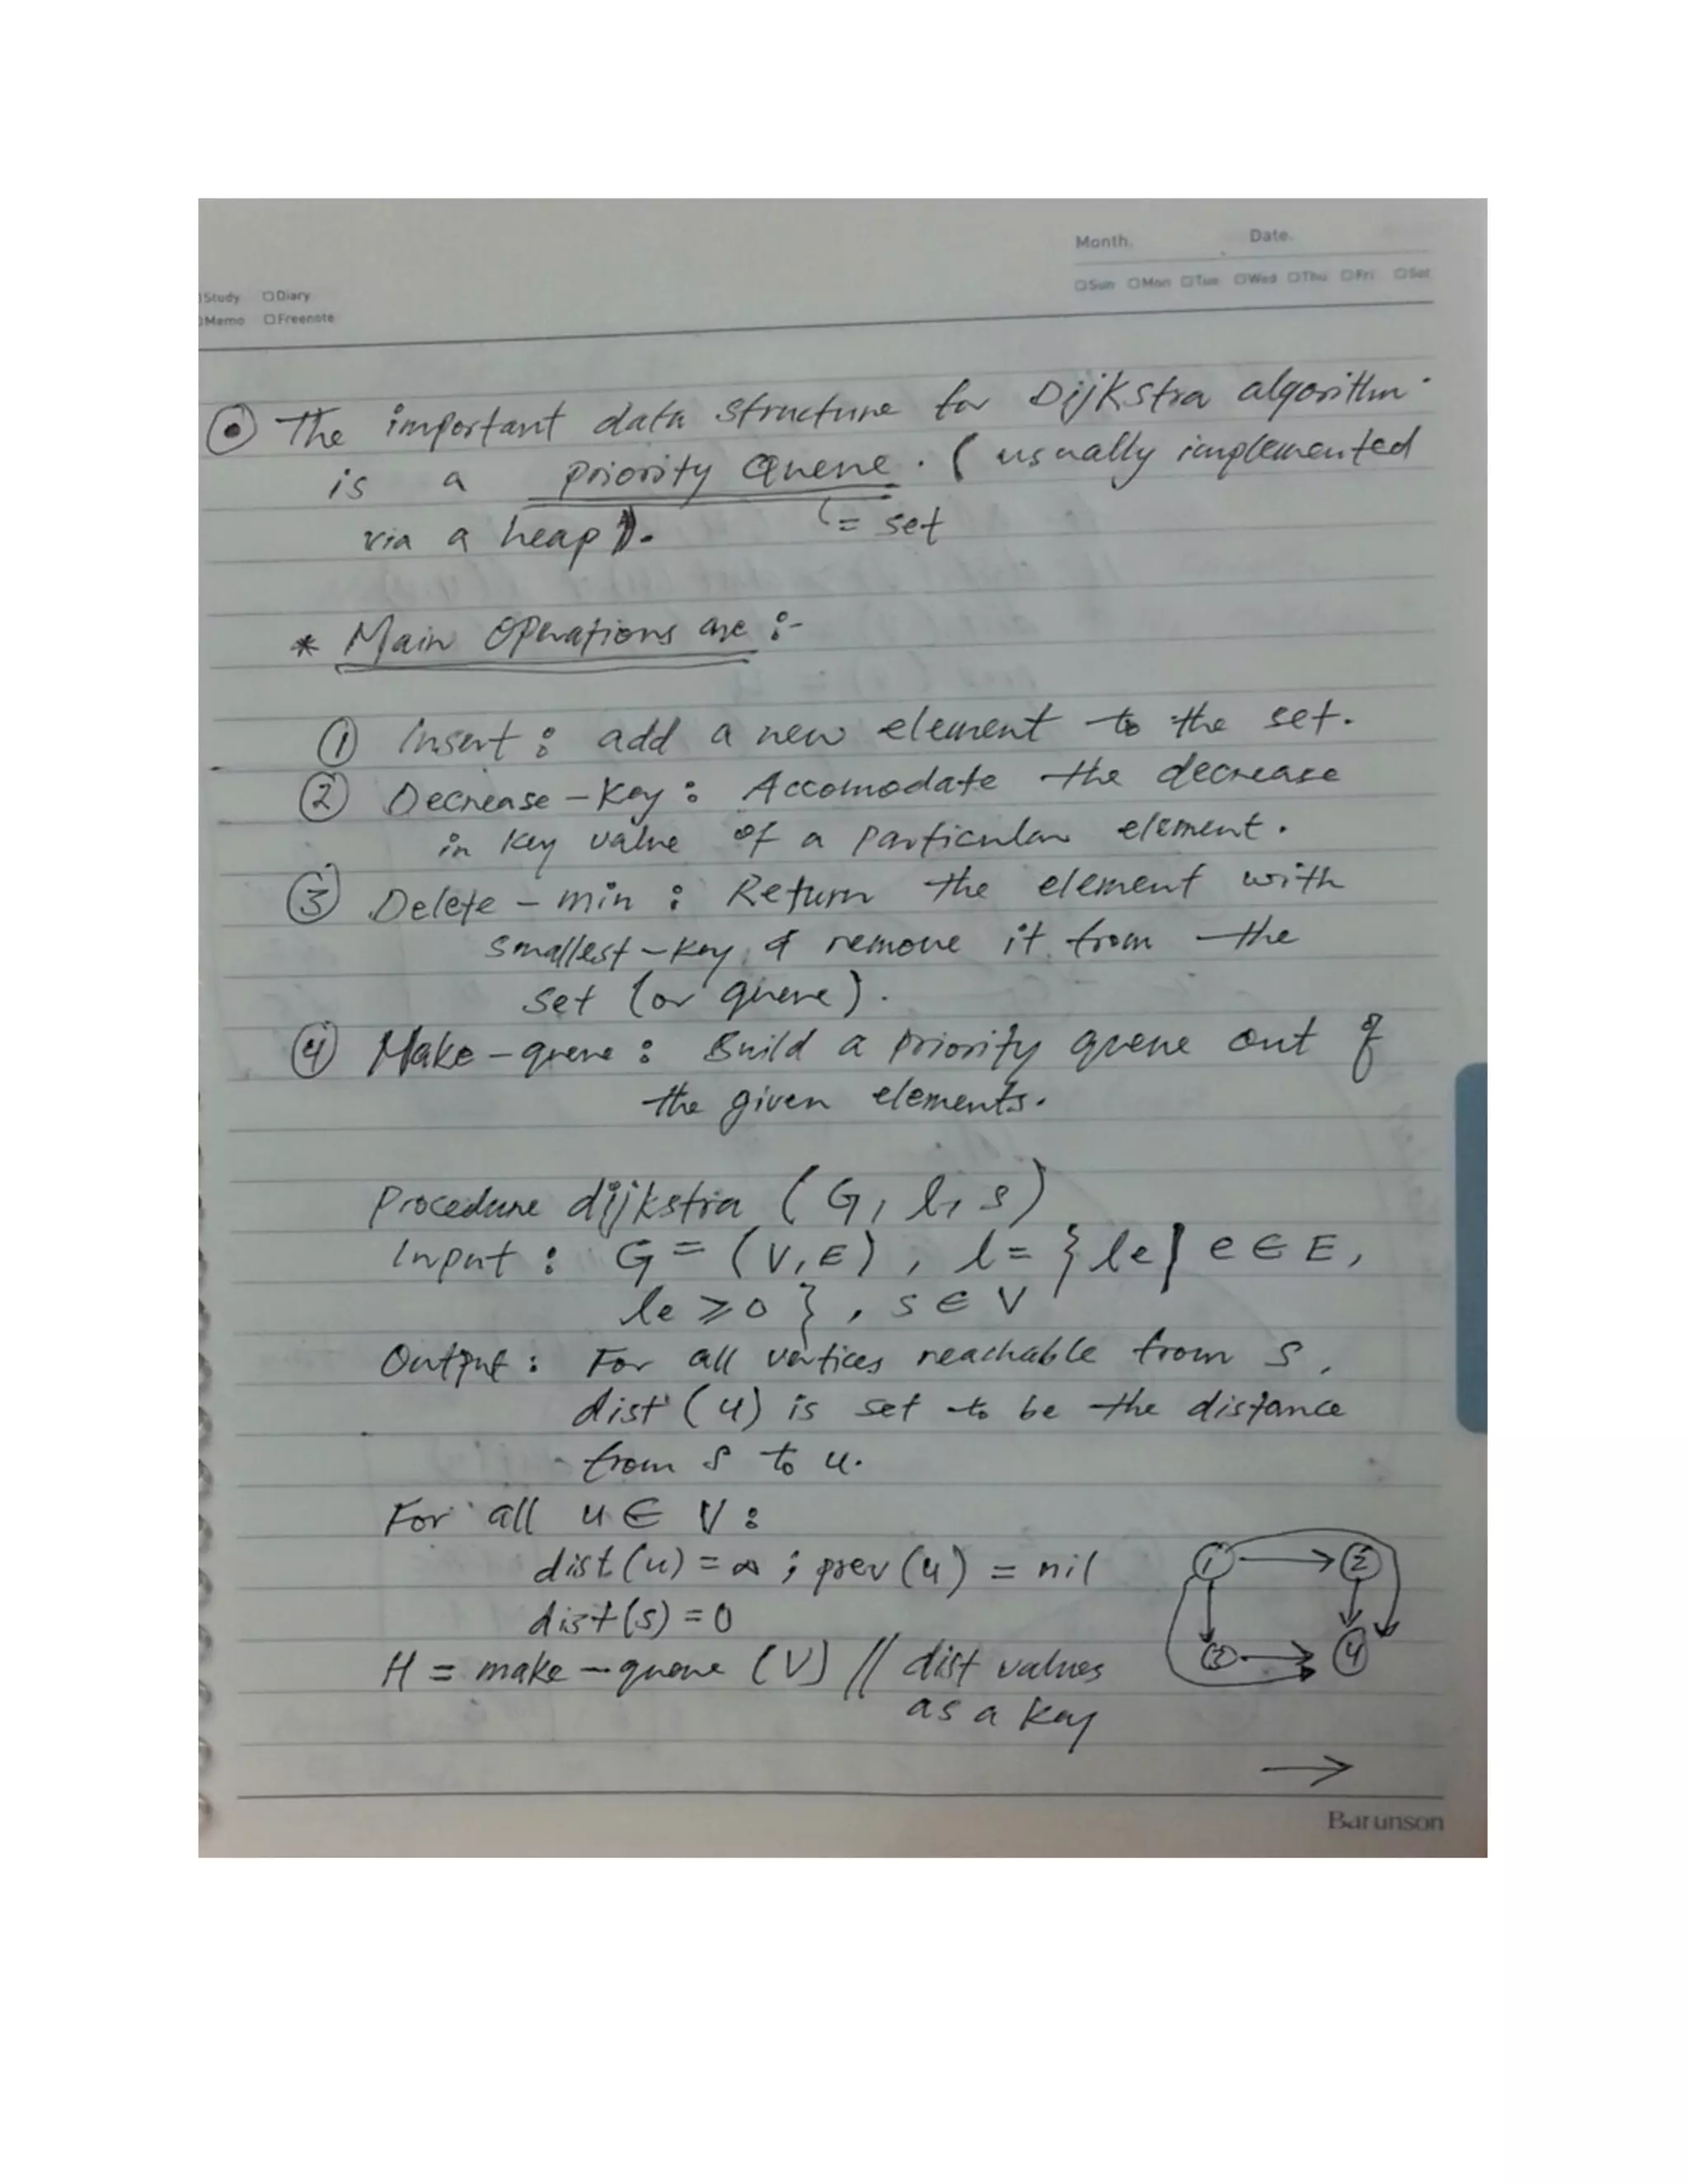 Month. Date.
Study □Diary □Sun □Mon □Tue □Wed □Thu □Fri □Sat
Memo □Freenote
⊙ The important data structure for Dijkstra algorithm
is a priority Queue. (usually implemented
via a heap). ( = set
* Main Operations are :-
① Insert : add a new element to the set.
② Decrease-Key : Accomodate the decrease
in key value of a particular element.
③ Delete-min : Return the element with
smallest-key, & remove it from the
set (or queue).
④ Make-queue : Build a priority queue out of
the given elements.
Procedure dijkstra (G, l, s)
Input : G = (V, E), l = {le | e ∈ E,
le ≥ 0}, s ∈ V
Output : For all vertices reachable from s,
dist(u) is set to be the distance
from s to u.
For all u ∈ V :
dist(u) = ∞ ; prev(u) = nil
1 → 2
dist(s) = 0
H = make-queue (V) // dist values
3 → 4
as a key
→
Barunson